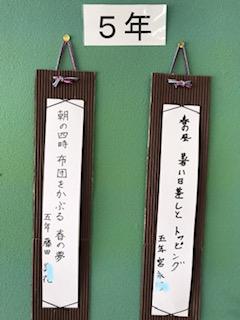 5年
春の昼 暑い日差しと トッピング
五年 宮永
朝の四時 布団をかぶる 春の夢
五年 藤田